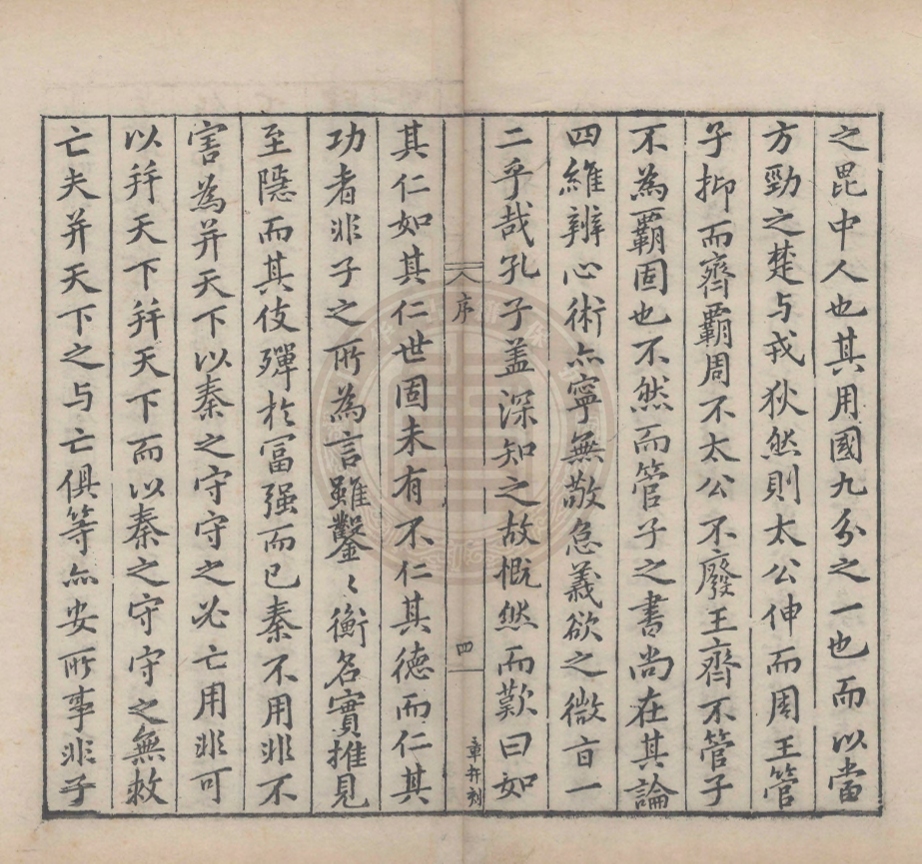 之毘中人也其用國九分之一也而以當
方勁之楚与戎狄然則太公伸而周王管
子抑而齊覇周不太公不廢王齊不管子
不為覇固也不然而管子之書尚在其論
四維辨心術亦寧無敬怠義欲之微言一
二乎哉孔子盖深知之故慨然而歎曰如
序
四
章弁刻
其仁如其仁世固未有不仁其德而仁其
功者非子之所為言雖鑿〻衡名實推見
至隱而其伎殫於冨强而已秦不用非不
害為并天下以秦之守守之必亡用非可
以并天下并天下而以秦之守守之無救
亡夫并天下之与亡俱等亦安所事非子